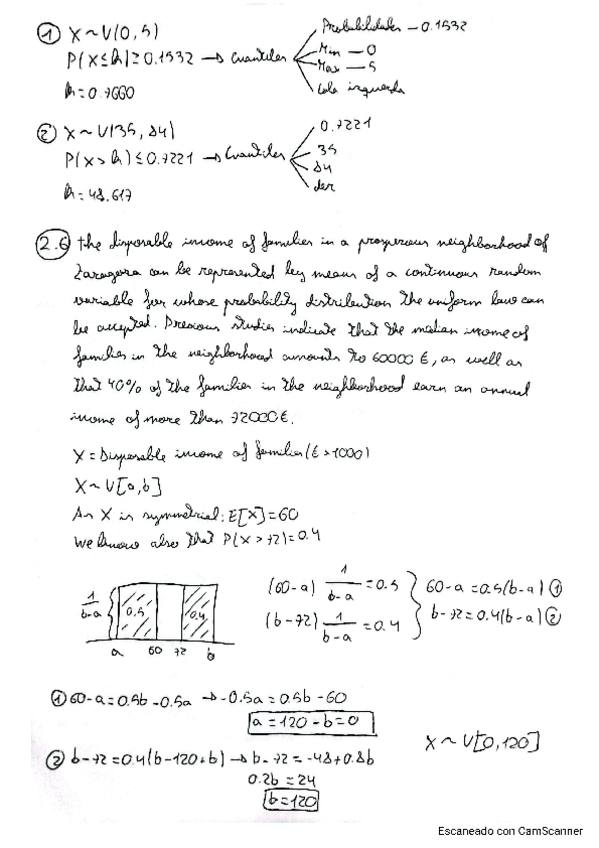 ① X ~ U(0,5)
P(X ≤ k) ≥ 0.1532 → Cuantiles
Probabilidades – 0.1532
Min – 0
Max – 5
Cola izquierda
k = 0.7660
② X ~ U(35, 84)
P(X > k) ≤ 0.7221 → Cuantiles
0.7221
35
84
der
k = 48.617
2.6 The disposable income of families in a prosperous neighborhood of
Zaragoza can be represented by means of a continuous random
variable for whose probability distribution the uniform law can
be accepted. Previous studies indicate that the median income of
families in the neighborhood amounts to 60000 €, as well as
that 40% of the families in the neighborhood earn an annual
income of more than 72000€.
X = Disposable income of families (€ × 1000)
X ~ U[a,b]
As X is symmetrical: E[X] = 60
We know also that P(X > 72) = 0.4
1/(b-a) 0.5 0.4
a 60 72 b
(60-a) 1/(b-a) = 0.5 } 60-a = 0.5(b-a) ①
(b-72) 1/(b-a) = 0.4 } b-72 = 0.4(b-a) ②
① 60-a = 0.5b - 0.5a → -0.5a = 0.5b - 60
a = 120 - b = 0
② b-72 = 0.4(b-120+b) → b-72 = -48+0.8b
0.2b = 24
b = 120
X ~ U[0,120]
Escaneado con CamScanner